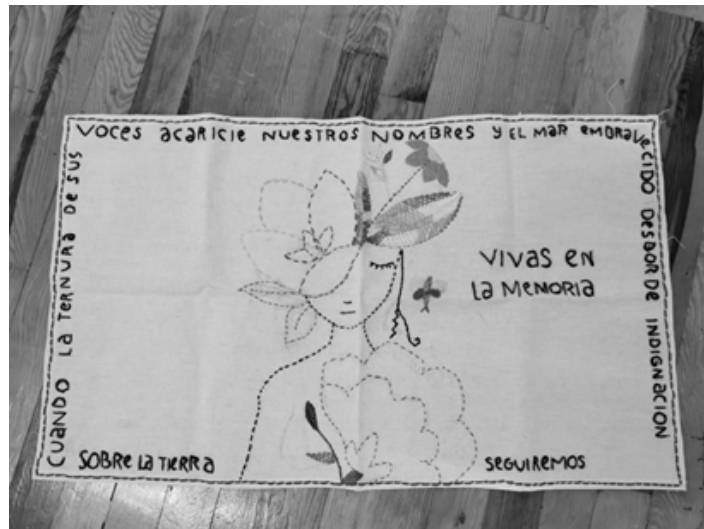 CUANDO LA TERNURA DE SUS
VOCES acaRICIE NUESTROS NOMBRES Y EL MAR EMBRAVECIDO DESBORDE INDIGNACION
SOBRE LA TIERRA
SEGUIREMOS
VIVAS EN
LA MEMORIA